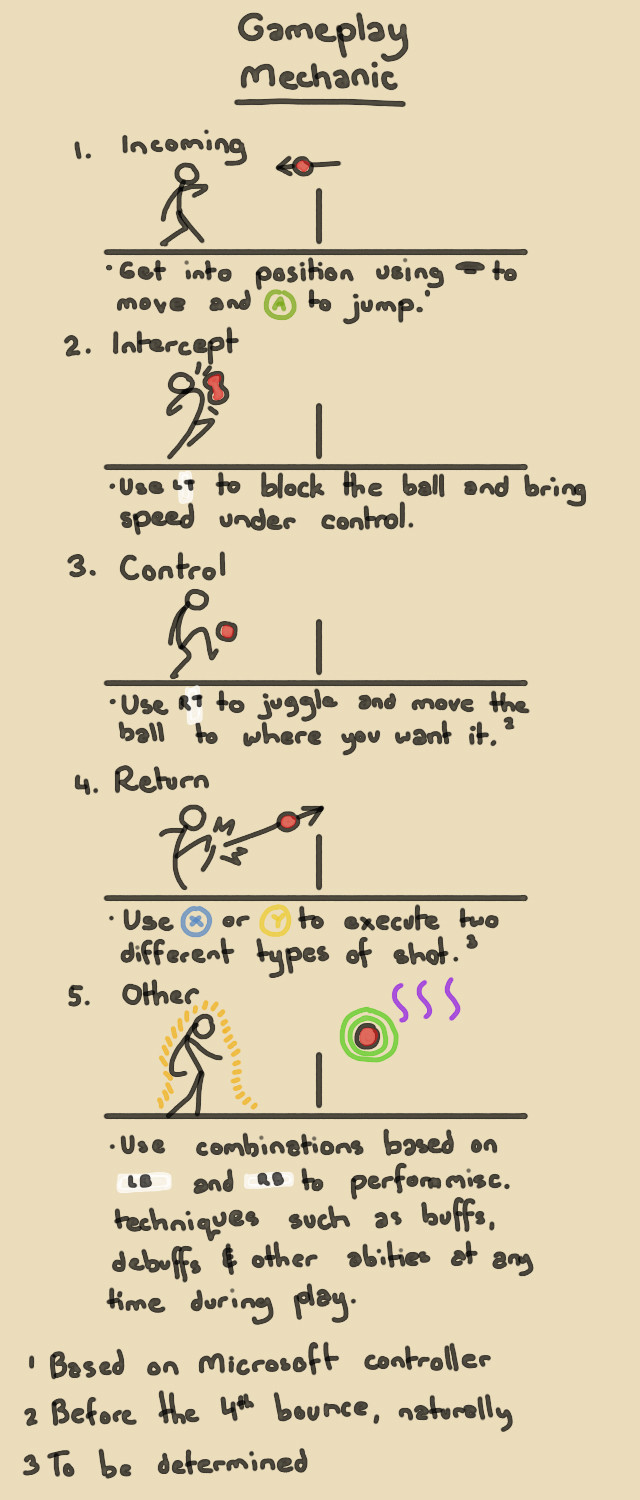 Gameplay
Mechanic
1. Incoming
· Get into position using to
move and A to jump.¹
2. Intercept
· Use LT to block the ball and bring
speed under control.
3. Control
· Use RT to juggle and move the
ball to where you want it.²
4. Return
· Use X or Y to execute two
different types of shot.³
5. Other
· Use combinations based on
LB and RB to perform misc.
techniques such as buffs,
debuffs & other abities at any
time during play.
1 Based on Microsoft controller
2 Before the 4th bounce, naturally
3 To be determined